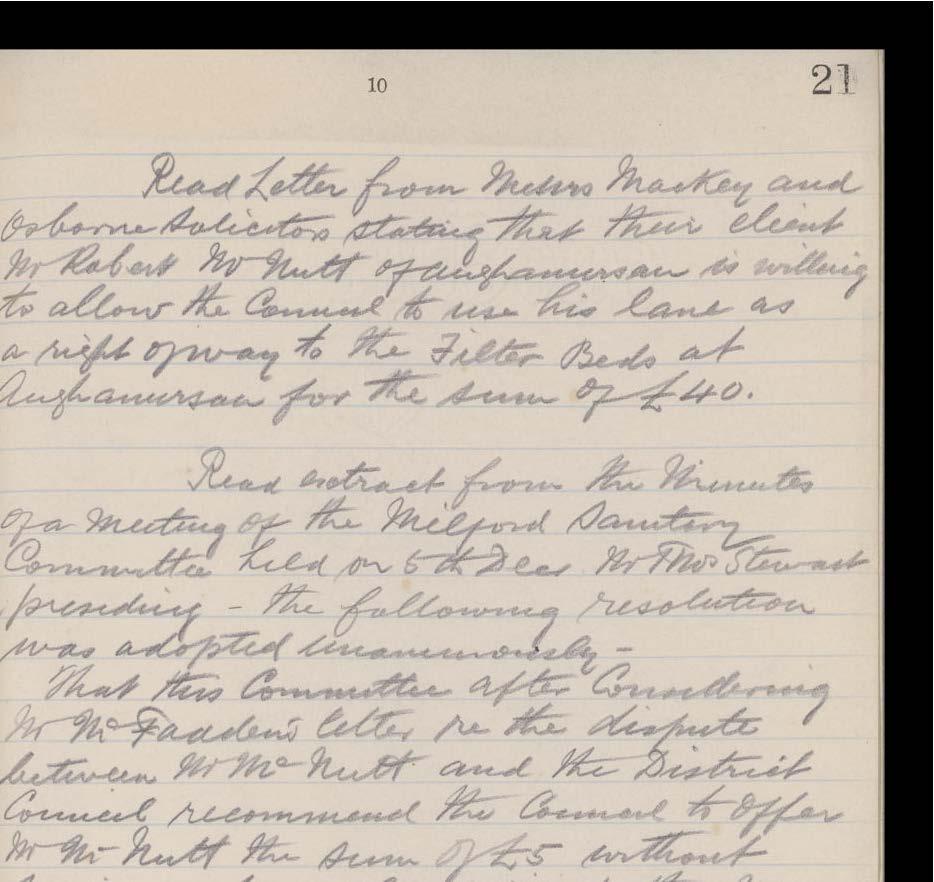 10
21
Read Letter from Messrs Mackey and
Osborne Solicitors stating that their client
Mr Robert McNutt of Aughamursan is willing
to allow the Council to use his lane as
a right of way to the Filter Beds at
Aughamursan for the sum of £40.
Read extract from the Minutes
of a Meeting of the Milford Sanitary
Committee held on 5th Decr Mr Thos Stewart
presiding - the following resolution
was adopted unanimously -
That this Committee after Considering
Mr McFadden's letter re the dispute
between Mr McNutt and the District
Council recommend the Council to offer
Mr McNutt the sum of £5 without